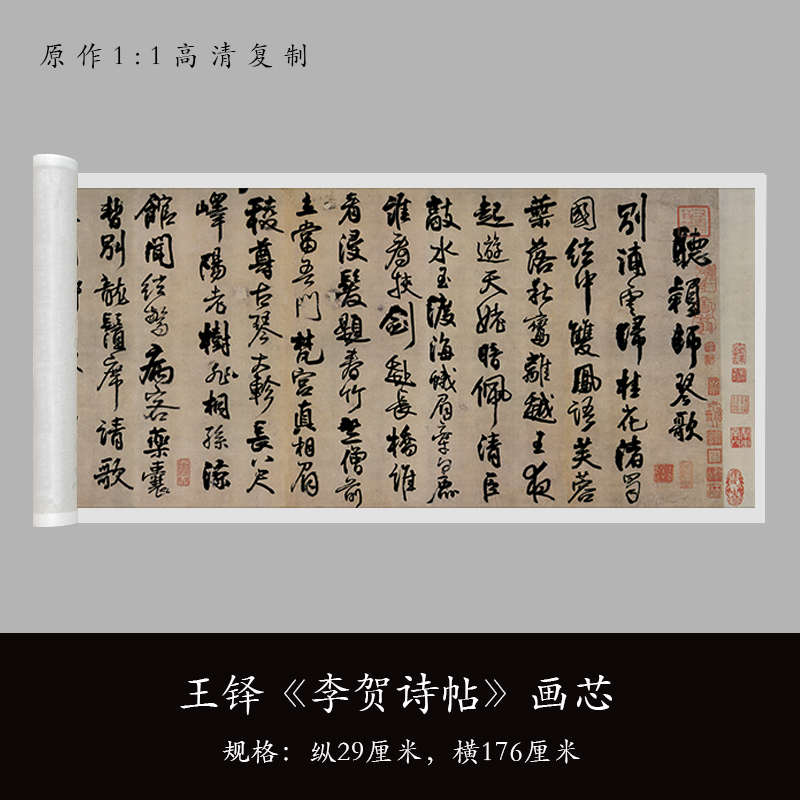 原作1:1高清复制
聽穎師琴歌
別浦雲歸桂花渚蜀
國絃中雙鳳語芙蓉
葉落秋鸞離越王夜
起遊天姥暗佩清臣
敲水玉渡海蛾眉牽白鹿
誰看挾劍赴長橋誰
看浸髮題春竹竺僧前
立當吾門梵宮真相眉
稜尊古琴大軫長八尺
嶧陽老樹非桐孫涼
館聞絃驚病客藥囊
暫別龍鬚席請歌
王铎《李贺诗帖》画芯
规格：纵29厘米，横176厘米